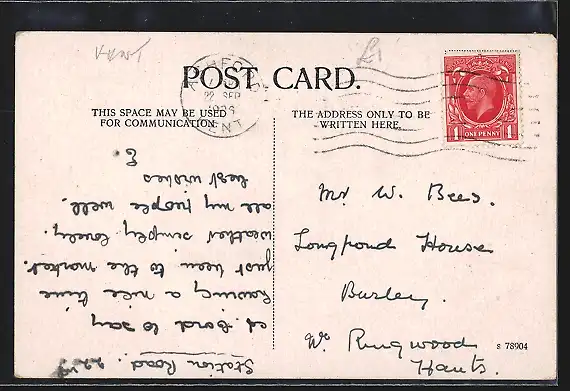 KENT
£1
POST CARD.
ASHFORD
22 SEP
1936
KENT
ONE PENNY
1 1
THIS SPACE MAY BE USED
FOR COMMUNICATION.
THE ADDRESS ONLY TO BE
WRITTEN HERE.
Station Road. 22
A card to say
having a nice time
just been to the market.
weather simply lovely.
all my people well.
best wishes
E
Mr W. Bees.
Longpond House
Burley.
Nr Ringwood
Hants.
S 78904